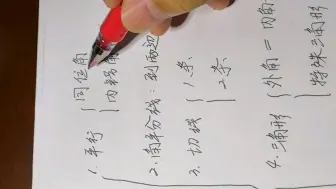 1. 平行 { 同位角
内错角
2. 角平分线:到两边
3. 切线 { 1条
2条
4. 三角形 { 外角=内角
特殊三角形